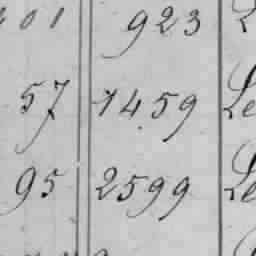 01 923
57 1459
95 2599